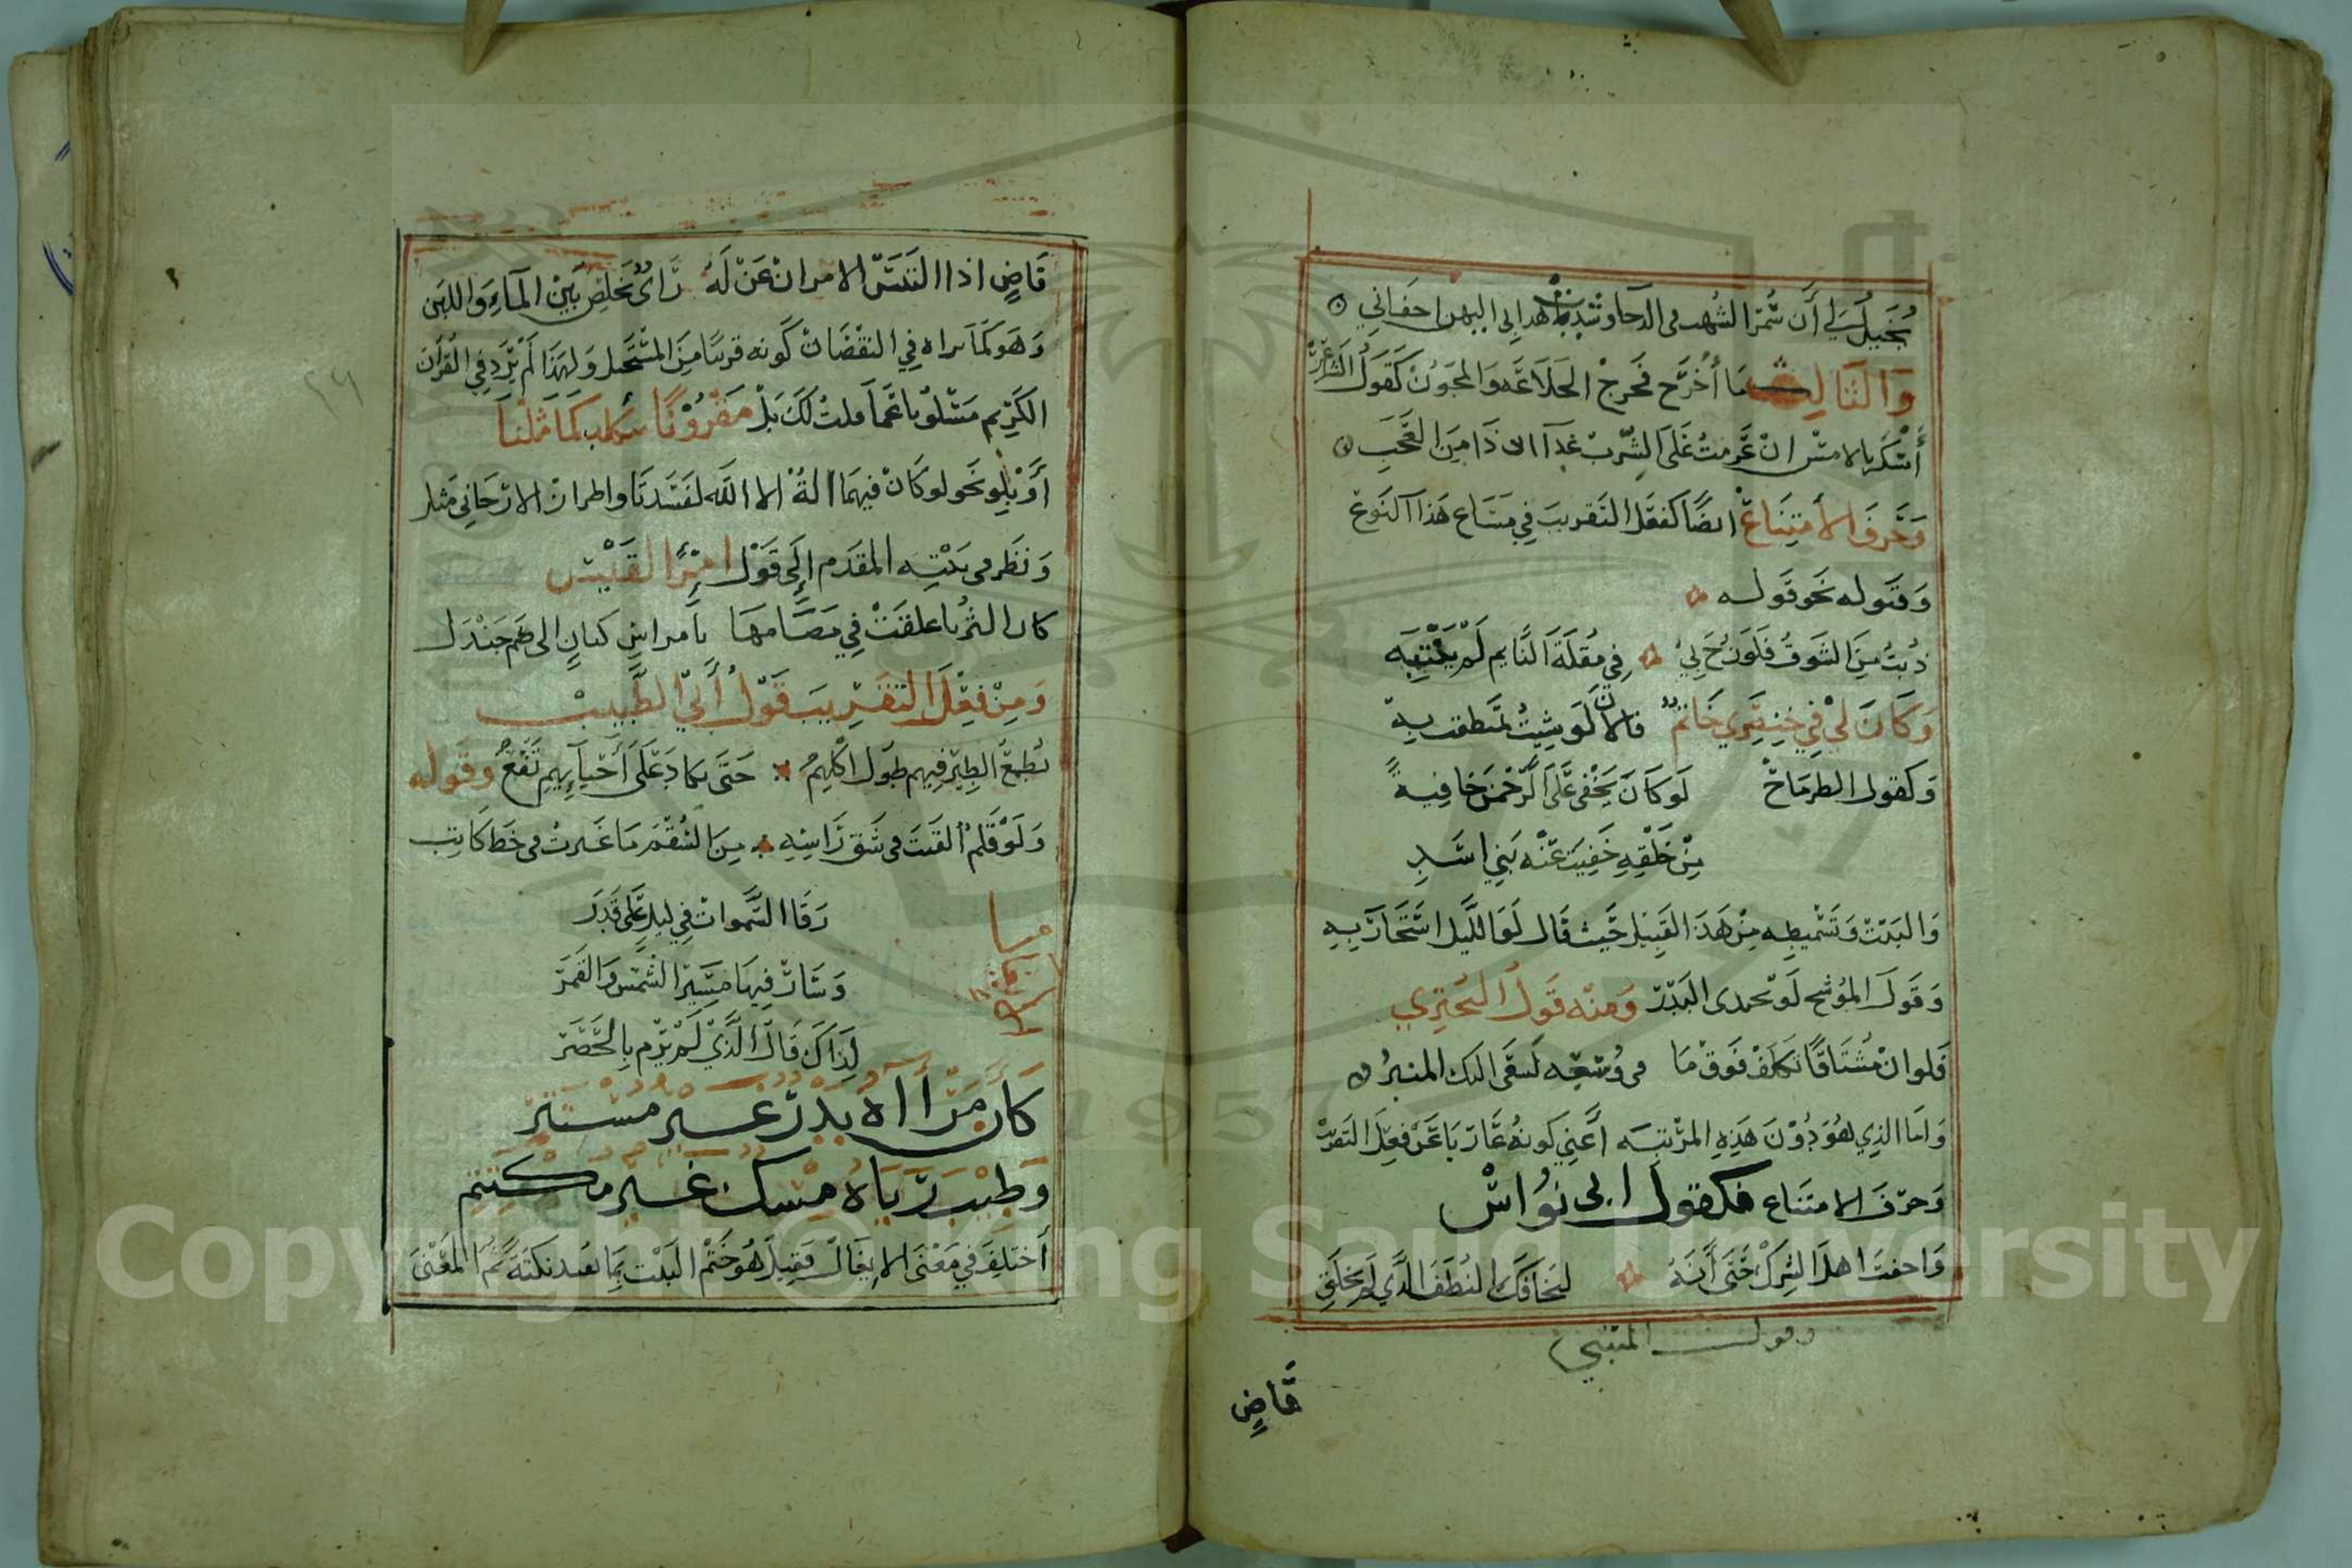 يُخَيَّلُ لي أن سُمّرَ الشُهب في الدجا وشدت باهدابي اليهن اجفاني
وَالثَالِث مَا أُخْرَج مَخرَجْ الخلَاعَه وَالمجوُنْ كَقَولُ الشاعر
أَسْكَر بالامسْ انْ عَزمتُ عَلَى الشّرب غَدَا ان ذَا مِنَ العَجَبِ
وَحَرفَ الأمتِنَاعْ ايضًا كفعَل التَقريبَ في مسَاع هَذا النَوعْ
وَقبَوله نحَو قَوله
ذُبتُ مِنَ الشَوقْ فَلَو زُجَ بيْ في مُقلَة النَّايم لَمْ يَنْتَبِه
وَكَانَ لِيْ فِي خِنصِري خَاتمٌ فالان لَو شِيتُ تمَنطقتُ بِهِ
وَكقول الطرمَاحْ لَو كَانَ يَخْفى عَلَى الرَّحْمنِ خافِيةً
مِنْ خَلْقِهِ خَفِيَتْ عَنْه بَنِي اسَدِ
وَالبَيتْ وَتَسْميطِه مِنْ هَذَا القَبِيل حَيث قَال لَو الليل اسْتَجَارَ بِهِ
وَقَولَ المُوشح لَو تحدى البَدْرَ وَمنْه قَولُ البُحتِري
فَلوانْ مُشتَاقًا تكَلفَ فَوقْ مَا في وُسْعِه لَسعَى اليك المنبرُ
وَامَا الذِي هُوَ دُوْنَ هَذِهِ المرْتَبَه أعَنِي كَونهُ عَارِيَا عَنْ فعِلَ التقريب
وَحرْفَ الامتنَاع فكقول ابى نُوَاسْ
وَاخفتَ اهلَ الشِركْ حَتَى أنَهُ لتخَافَك النُطفَ التي لَم تخلَقِ
وقول المتنبي
قاضٍ
قَاضٍ اذا التَبسَ الامرانْ عَنْ لَهُ رَايٌ يُخَلِّصْ بَيْن المَآءِ وَاللبَن
وَهَو كَمَا تراه في النقْصَانْ كَونه قريبًا مِنَ المسْتحَيل وَلهَذَا لَمْ يَرِد فِي القُرآن
الكَرِيم مَسْلوْبا عَمَا قلتْ لكَ بَلْ مَقرُوْنًا بكاد كَمَا مَثلْنَا
أَوْ بِلَو نحَو لو كَانْ فيهمَا الهةٌ الا الله لفَسَدتَا واطم انْ الارّجَانِي مَثلَ
وَنظَر في بَيْتِه المقدَم إلَى قَوْل امْرُء القَيْس
كان الثرُيا علقتْ فِي مَصَامهَا بامراسِ كتانٍ الى صُم جَنْدَل
وَمِنْ فِعْلَ التَقرِيبَ قَوْلُ أَبِي الطَّيِب
تُطمعُ الطَيْر فِيهم طُول اكْلِهمُ حَتَى تكاد عَلَى أحيَائِهِم تَقَعُ وقَوله
وَلَوْ قَلمٌ القيتَ في شَق رَاسِهِ مِنَ السُقْمِ مَا غَيرتُ في خَط كَاتِب
رَقَا السَّموَاتْ فِي ليلٍ عَلى قَدَر
وَسَارْ فِيهَا مَسِيْرَ الشَمْس وَالقَمَرَ
لِذَاكَ قَالَ الَّذِيْ لَمْ يَرْم بِالحَصَر
كَأنَ مَرْأَاهُ بَدْرٌ غيرَ مسْتَتِر
وَطَيْبَ رَيَاهُ مِسْك غير مكْتتِم
أختلِفَ فِي مَعْنَى الاِيغَالْ فَقيلَ هُو خَتْم البَيْت بِمَا يفيد نكتَة يَتُم المَعْنَى